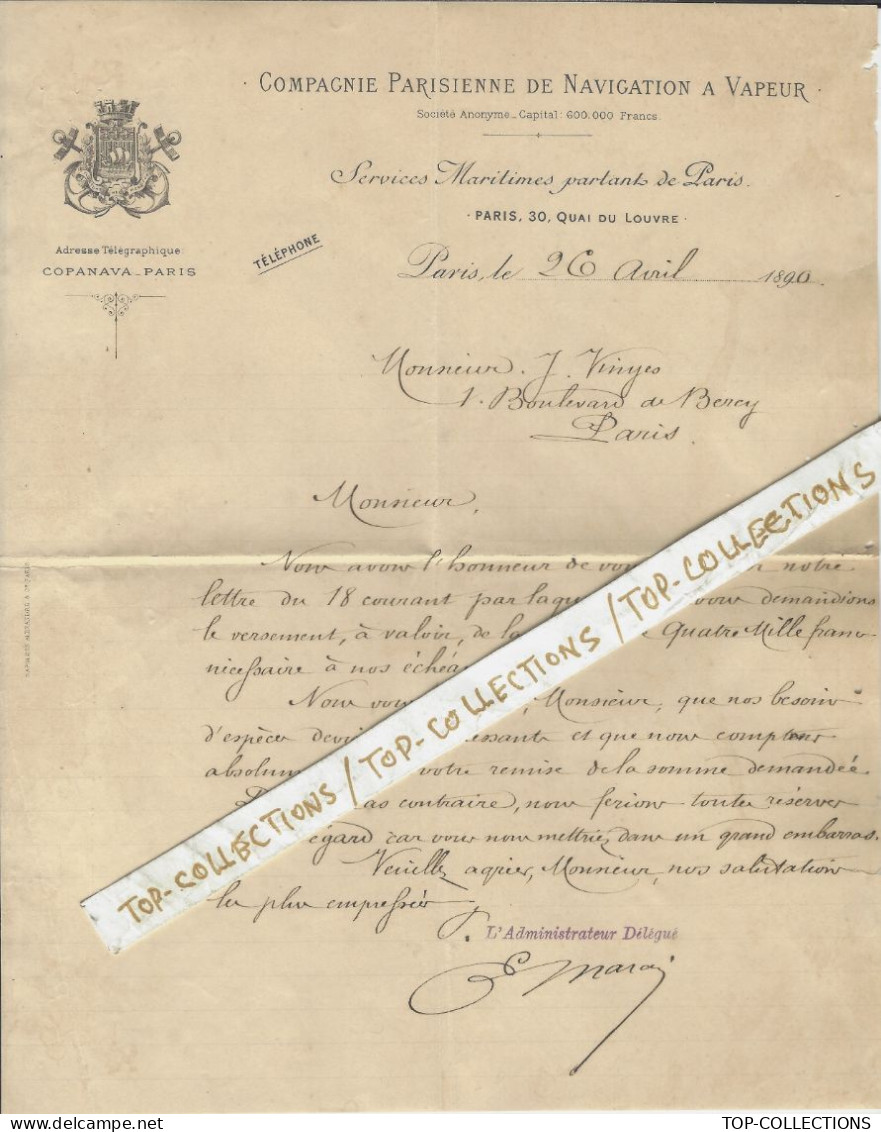 · COMPAGNIE PARISIENNE DE NAVIGATION A VAPEUR ·
Société Anonyme _ Capital: 600.000 Francs.
Services Maritimes partant de Paris.
· PARIS, 30, QUAI DU LOUVRE ·
Adresse Télégraphique:
COPANAVA _ PARIS
TÉLÉPHONE
Paris, le 26 Avril 1890.
Monsieur J. Vinyes
1. Boulevard de Bercy
Paris.
Monsieur,
Nous avons l'honneur de notre
lettre du 18 courant par vous demandions
le versement, à valoir, de la Quatre Mille francs
nécessaire à nos
Nous Monsieur, que nos besoins
d'espèces et que nous comptons
votre remise de la somme demandée.
contraire, nous ferions toutes réserves
car vous nous mettriez dans un grand embarras.
Veuillez agréer, Monsieur, nos salutations
les plus empressées
P. L'Administrateur Délégué
TOP-COLLECTIONS / TOP-COLLECTIONS / TOP-COLLECTIONS
TOP-COLLECTIONS